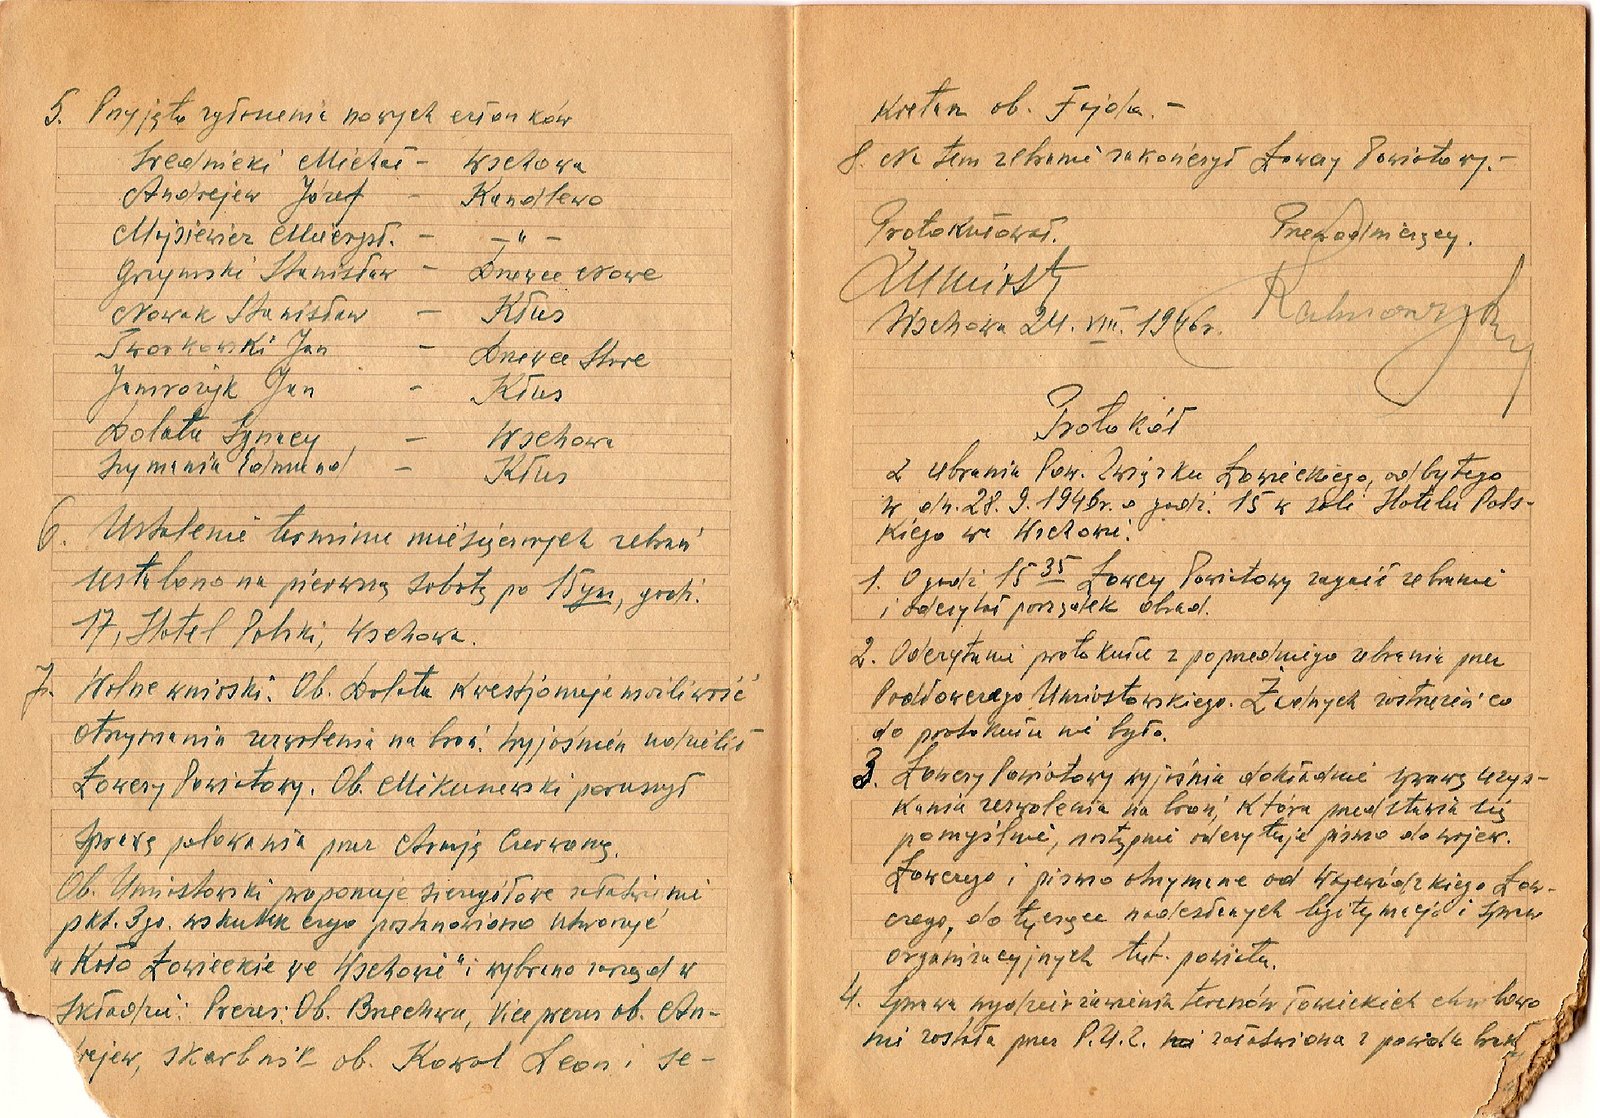 5. Przyjęto zgłoszenia nowych członków
Średnicki Michał - Wschowa
Andrejew Józef - Kandlewo
Mysiewicz Mieczysł. - -"-
Grzymski Stanisław - Dnewce Nowe
Nowak Stanisław - Kłus
Tworkowski Jan - Dnewce Stare
Jamrożyk Jan - Kłus
Dolata Ignacy - Wschowa
Szymania Edmund - Kłus
6. Ustalenie terminu miesięcznych zebrań
ustalono na pierwszą sobotę po 15ym, godz.
17, Hotel Polski, Wschowa.
7. Wolne wnioski. Ob. Dolata kwestjonuje możliwość
otrzymania zezwolenia na broń. Wyjaśnień udzielił
Łowczy Powiatowy. Ob. Mikunewski poruszył
sprawę polowania przez Armję Czerwoną.
Ob. Umiastowski proponuje szczegółowe załatwienie
pkt. 3go. wskutek czego postanowiono utworzyć
"Koło Łowieckie we Wschowie" i wybrano zarząd w
składzie: Prezes: Ob. Brzechwa, Vice prezes ob. An-
rejew, skarbnik ob. Kowol Leon i se-
kretarz ob. Fajda. -
8. Na tem zebranie zakończył Łowczy Powiatowy. -
Protokułował. Przewodniczący.
Umiast
Wschowa 24. VIII. 1946r.
Protokół
z zebrania Pow. Związku Łowieckiego, odbytego
w dn. 28. 9. 1946r. o godz. 15 w sali Hotelu Pols-
kiego we Wschowie.
1. O godz 15 35 Łowczy Powiatowy zagaił zebranie
i odczytał porządek obrad.
2. Odczytanie protokułu z poprzedniego zebrania przez
Podłowczego Umiastowskiego. Żadnych zastrzeżeń co
do protokułu nie było.
3. Łowczy Powiatowy wyjaśnia dokładnie sprawę uzys-
kania zezwolenia na broń, która przedstawia się
pomyślnie, następnie odczytuje pismo do wojew.
Łowczego i pismo otrzymane od Wojewódzkiego Łow-
czego, dotyczące nadesłanych legitymacji i spraw
organizacyjnych tut. powiatu.
4. Sprawa wydzierżawienia terenów łowieckich chwilowo
nie została przez P.U.Z. załatwiona z powodu brak